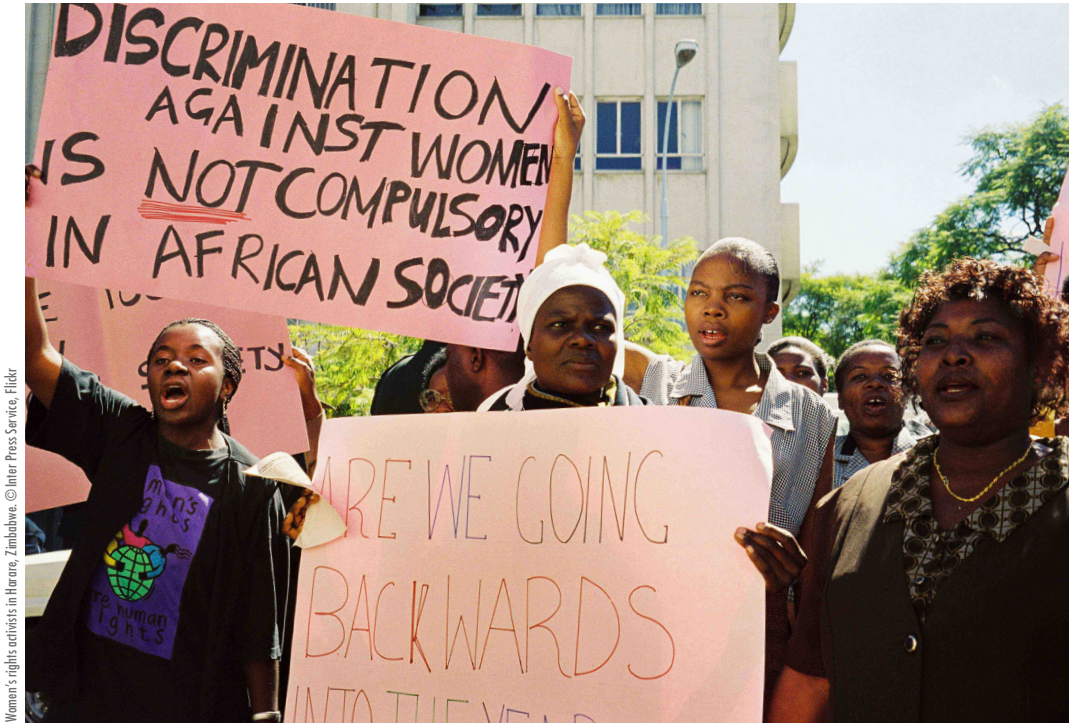 DISCRIMINATION
AGAINST WOMEN
IS NOT COMPULSORY
IN AFRICAN SOCIETY
ARE WE GOING
BACKWARDS
INTO THE YEAR
human
Women's rights activists in Harare, Zimbabwe. © Inter Press Service, Flickr